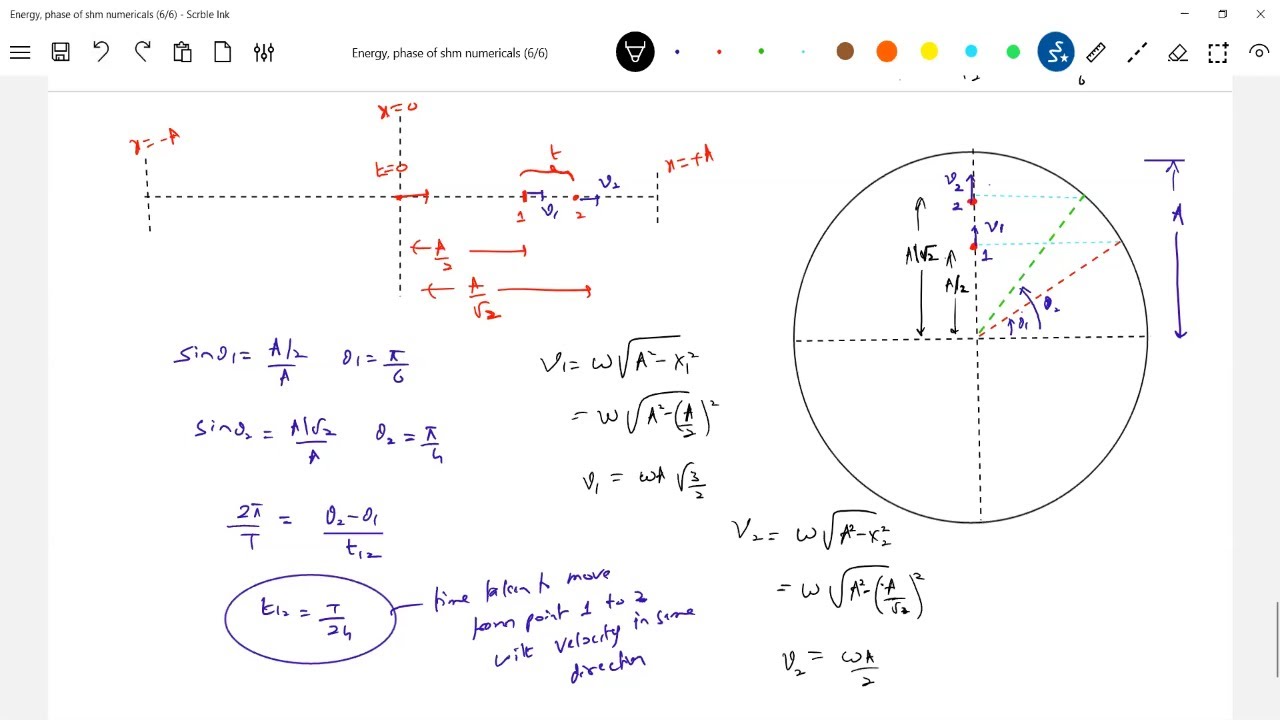 Energy, phase of shm numericals (6/6) - Scrble Ink
Energy, phase of shm numericals (6/6)
x=0
x=-A
x=+A
t=0
t
1
v₁
2
v₂
A/2
A/√2
v₂
2
v₁
1
A/√2
A/2
A
θ₁
θ₂
sinθ₁ = (A/2)/A θ₁ = π/6
sinθ₂ = (A/√2)/A θ₂ = π/4
2π/T = (θ₂-θ₁)/t₁₂
t₁₂ = T/24
time taken to move
from point 1 to 2
with velocity in same
direction
v₁ = ω√(A²-x₁²)
= ω√(A²-(A/2)²)
v₁ = ωA √3/2
V₂ = ω√(A²-x₂²)
= ω√(A²-(A/√2)²)
v₂ = ωA/2